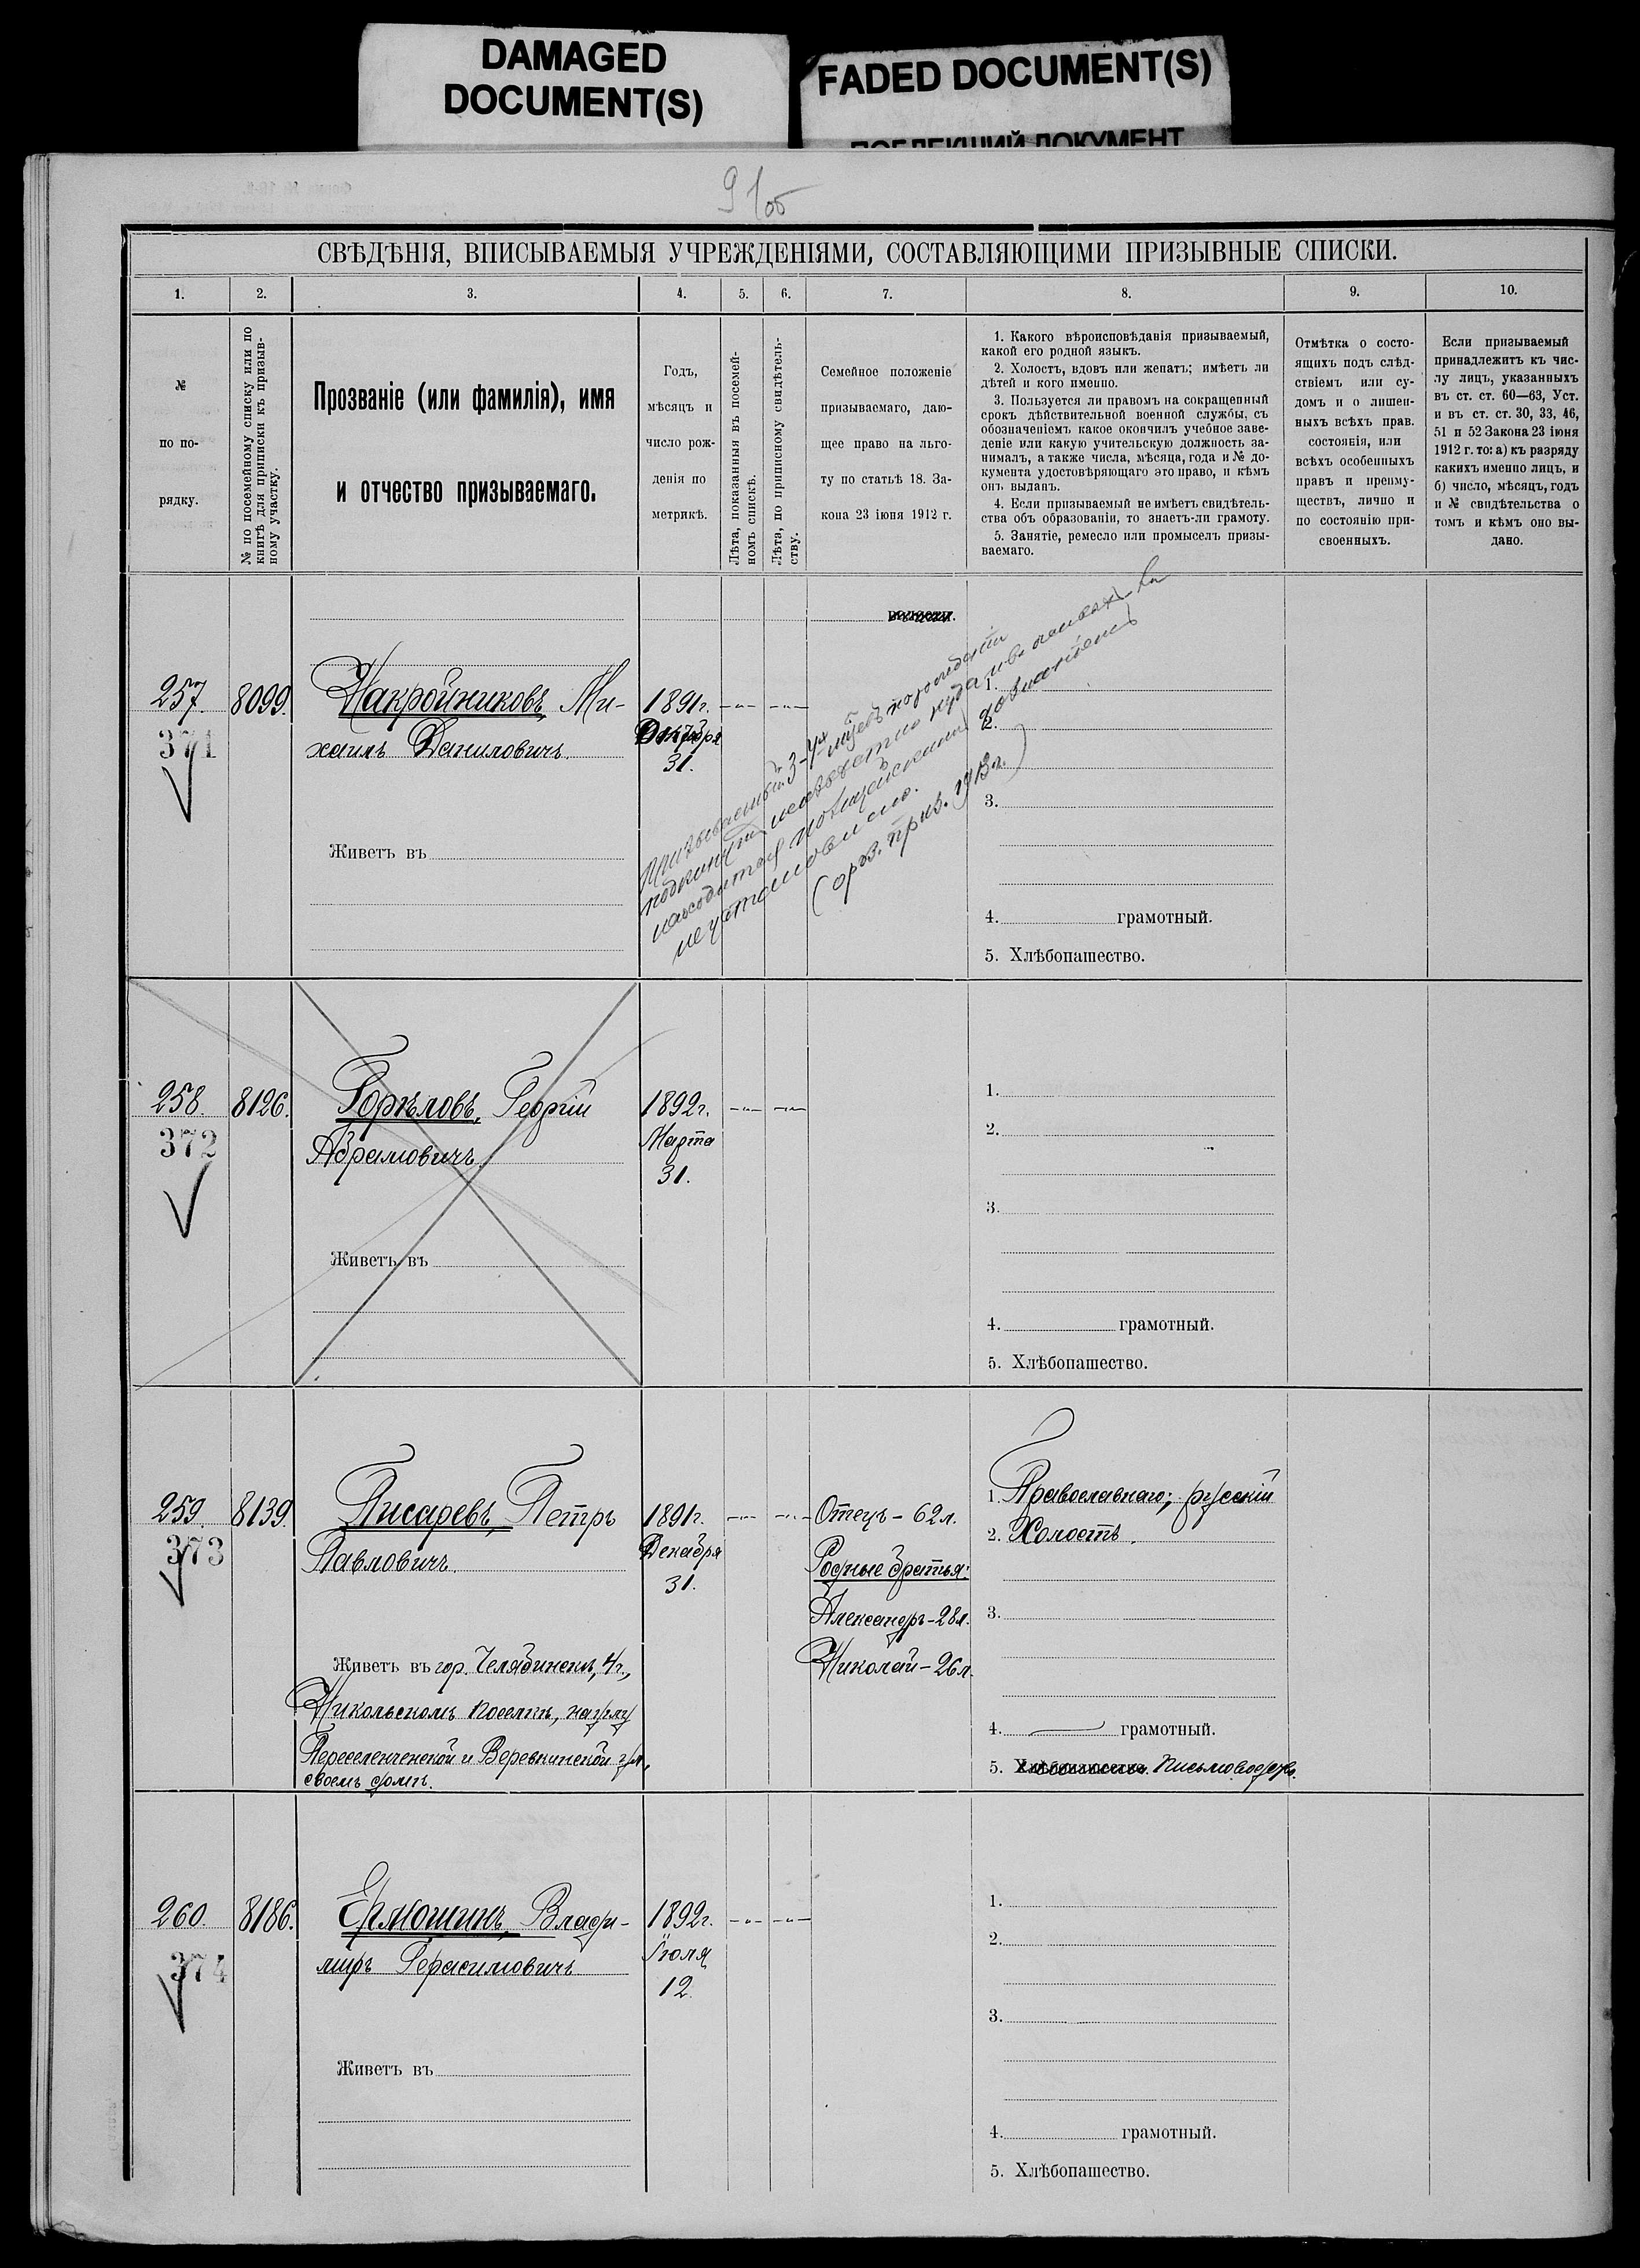 DAMAGED
DOCUMENT(S)
FADED DOCUMENT(S)
ПОБЛЕКШИЙ ДОКУМЕНТ
91об
СВѢДѢНІЯ, ВПИСЫВАЕМЫЯ УЧРЕЖДЕНІЯМИ, СОСТАВЛЯЮЩИМИ ПРИЗЫВНЫЕ СПИСКИ.
1. 2. 3. 4. 5. 6. 7. 8. 9. 10.
№
по по-
рядку.
№ по посемейному списку или по
книгѣ для приписки къ призыв-
ному участку.
Прозваніе (или фамилія), имя
и отчество призываемаго.
Годъ,
мѣсяцъ и
число рож-
денія по
метрикѣ.
Лѣта, показанныя въ посемей-
номъ спискѣ.
Лѣта, по приписному свидѣтель-
ству.
Семейное положеніе
призываемаго, даю-
щее право на льго-
ту по статьѣ 18. За-
кона 23 іюня 1912 г.
1. Какого вѣроисповѣданія призываемый,
какой его родной языкъ.
2. Холостъ, вдовъ или женатъ; имѣетъ ли
дѣтей и кого именно.
3. Пользуется ли правомъ на сокращенный
срокъ дѣйствительной военной службы, съ
обозначеніемъ какое окончилъ учебное заве-
деніе или какую учительскую должность за-
нималъ, а также числа, мѣсяца, года и № до-
кумента удостовѣряющаго это право, и кѣмъ
онъ выданъ.
4. Если призываемый не имѣетъ свидѣтель-
ства объ образованіи, то знаетъ-ли грамоту.
5. Занятіе, ремесло или промыселъ призы-
ваемаго.
Отмѣтка о состо-
ящихъ подъ слѣд-
ствіемъ или су-
домъ и о лишен-
ныхъ всѣхъ прав.
состоянія, или
всѣхъ особенныхъ
правъ и преиму-
ществъ, лично и
по состоянію при-
своенныхъ.
Если призываемый
принадлежитъ къ чис-
лу лицъ, указанныхъ
въ ст. ст. 60—63, Уст.
и въ ст. ст. 30, 33, 46,
51 и 52 Закона 23 іюня
1912 г. то: а) къ разряду
какихъ именно лицъ, и
б) число, мѣсяцъ, годъ
и № свидѣтельства о
томъ и кѣмъ оно вы-
дано.
257. 8099. Накройниковъ, Ми- 1891г.
371 хаилъ Даниловичъ.
31.
Живетъ въ
призываемый
неизвѣстно
находится полицейскимъ дознаніемъ
не установлено.
(прив. 1913г.)
1.
2.
3.
4. грамотный.
5. Хлѣбопашество.
258. 8126. Горѣловъ, Георгій 1892г.
372 Абрамовичъ. Марта
31.
Живетъ въ
1.
2.
3.
4. грамотный.
5. Хлѣбопашество.
259. 8139. Писаревъ, Петръ 1891г. Отецъ - 62л. 1. Православнаго; русскій
373 Павловичъ. Декабря Родные братья: 2. Холостъ.
31. Александръ - 28л. 3.
Живетъ въ гор. Челябинскѣ, 4ч., Николай - 26л.
Никольскомъ поселкѣ, на углу
Переселенческой и Веревкинской ул,
своемъ домѣ.
4. грамотный.
5. Хлѣбопашество. Письмоводство.
260. 8186. Ермошинъ, Влади- 1892г.
374 миръ Герасимовичъ Іюля
12.
Живетъ въ
1.
2.
3.
4. грамотный.
5. Хлѣбопашество.